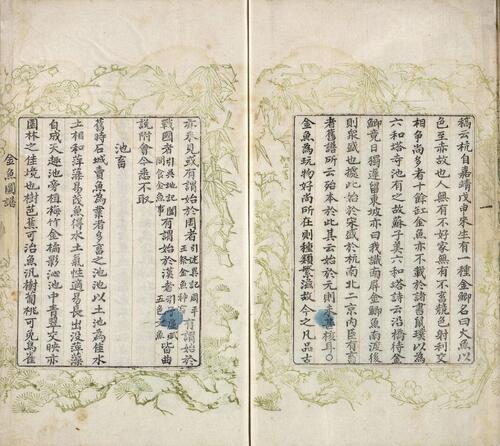 稿云杭自嘉靖戊申來生有一種金鯽名曰火魚以
色至赤故也人無有不好家無有不畜競色射利交
相爭尚多者十餘缸金魚亦不載於諸書鼠璞以爲
六和塔寺池有之故蘇子美六和塔詩云沿橋待金
鯽竟日獨遲留東坡亦曰我識南屏金鯽魚南渡後
則衆盛也據此始於宋盛於杭南北二京内臣有畜
者舊譜所云殆本於此其云始於元則未核耳〇
金魚爲玩物好尚所在則種類繁滋故今之凡品古
一
亦罕見或有謂始於周者引述異記周平王金魚有謂始於
戰國者引吳地記闔閭食金魚事有謂始於漢者五色之魚皆曲
說附會今悉不取
池畜
舊時石城賣魚爲業者多畜之池池以土池爲佳水
土相和萍藻易茂魚得水土氣性適易長出没萍藻
自成天趣池旁植梅竹金橘影沁池中青翠交映亦
園林之佳境也樹芭蕉可治魚汎樹葡桃可免鳥雀
金魚圖譜